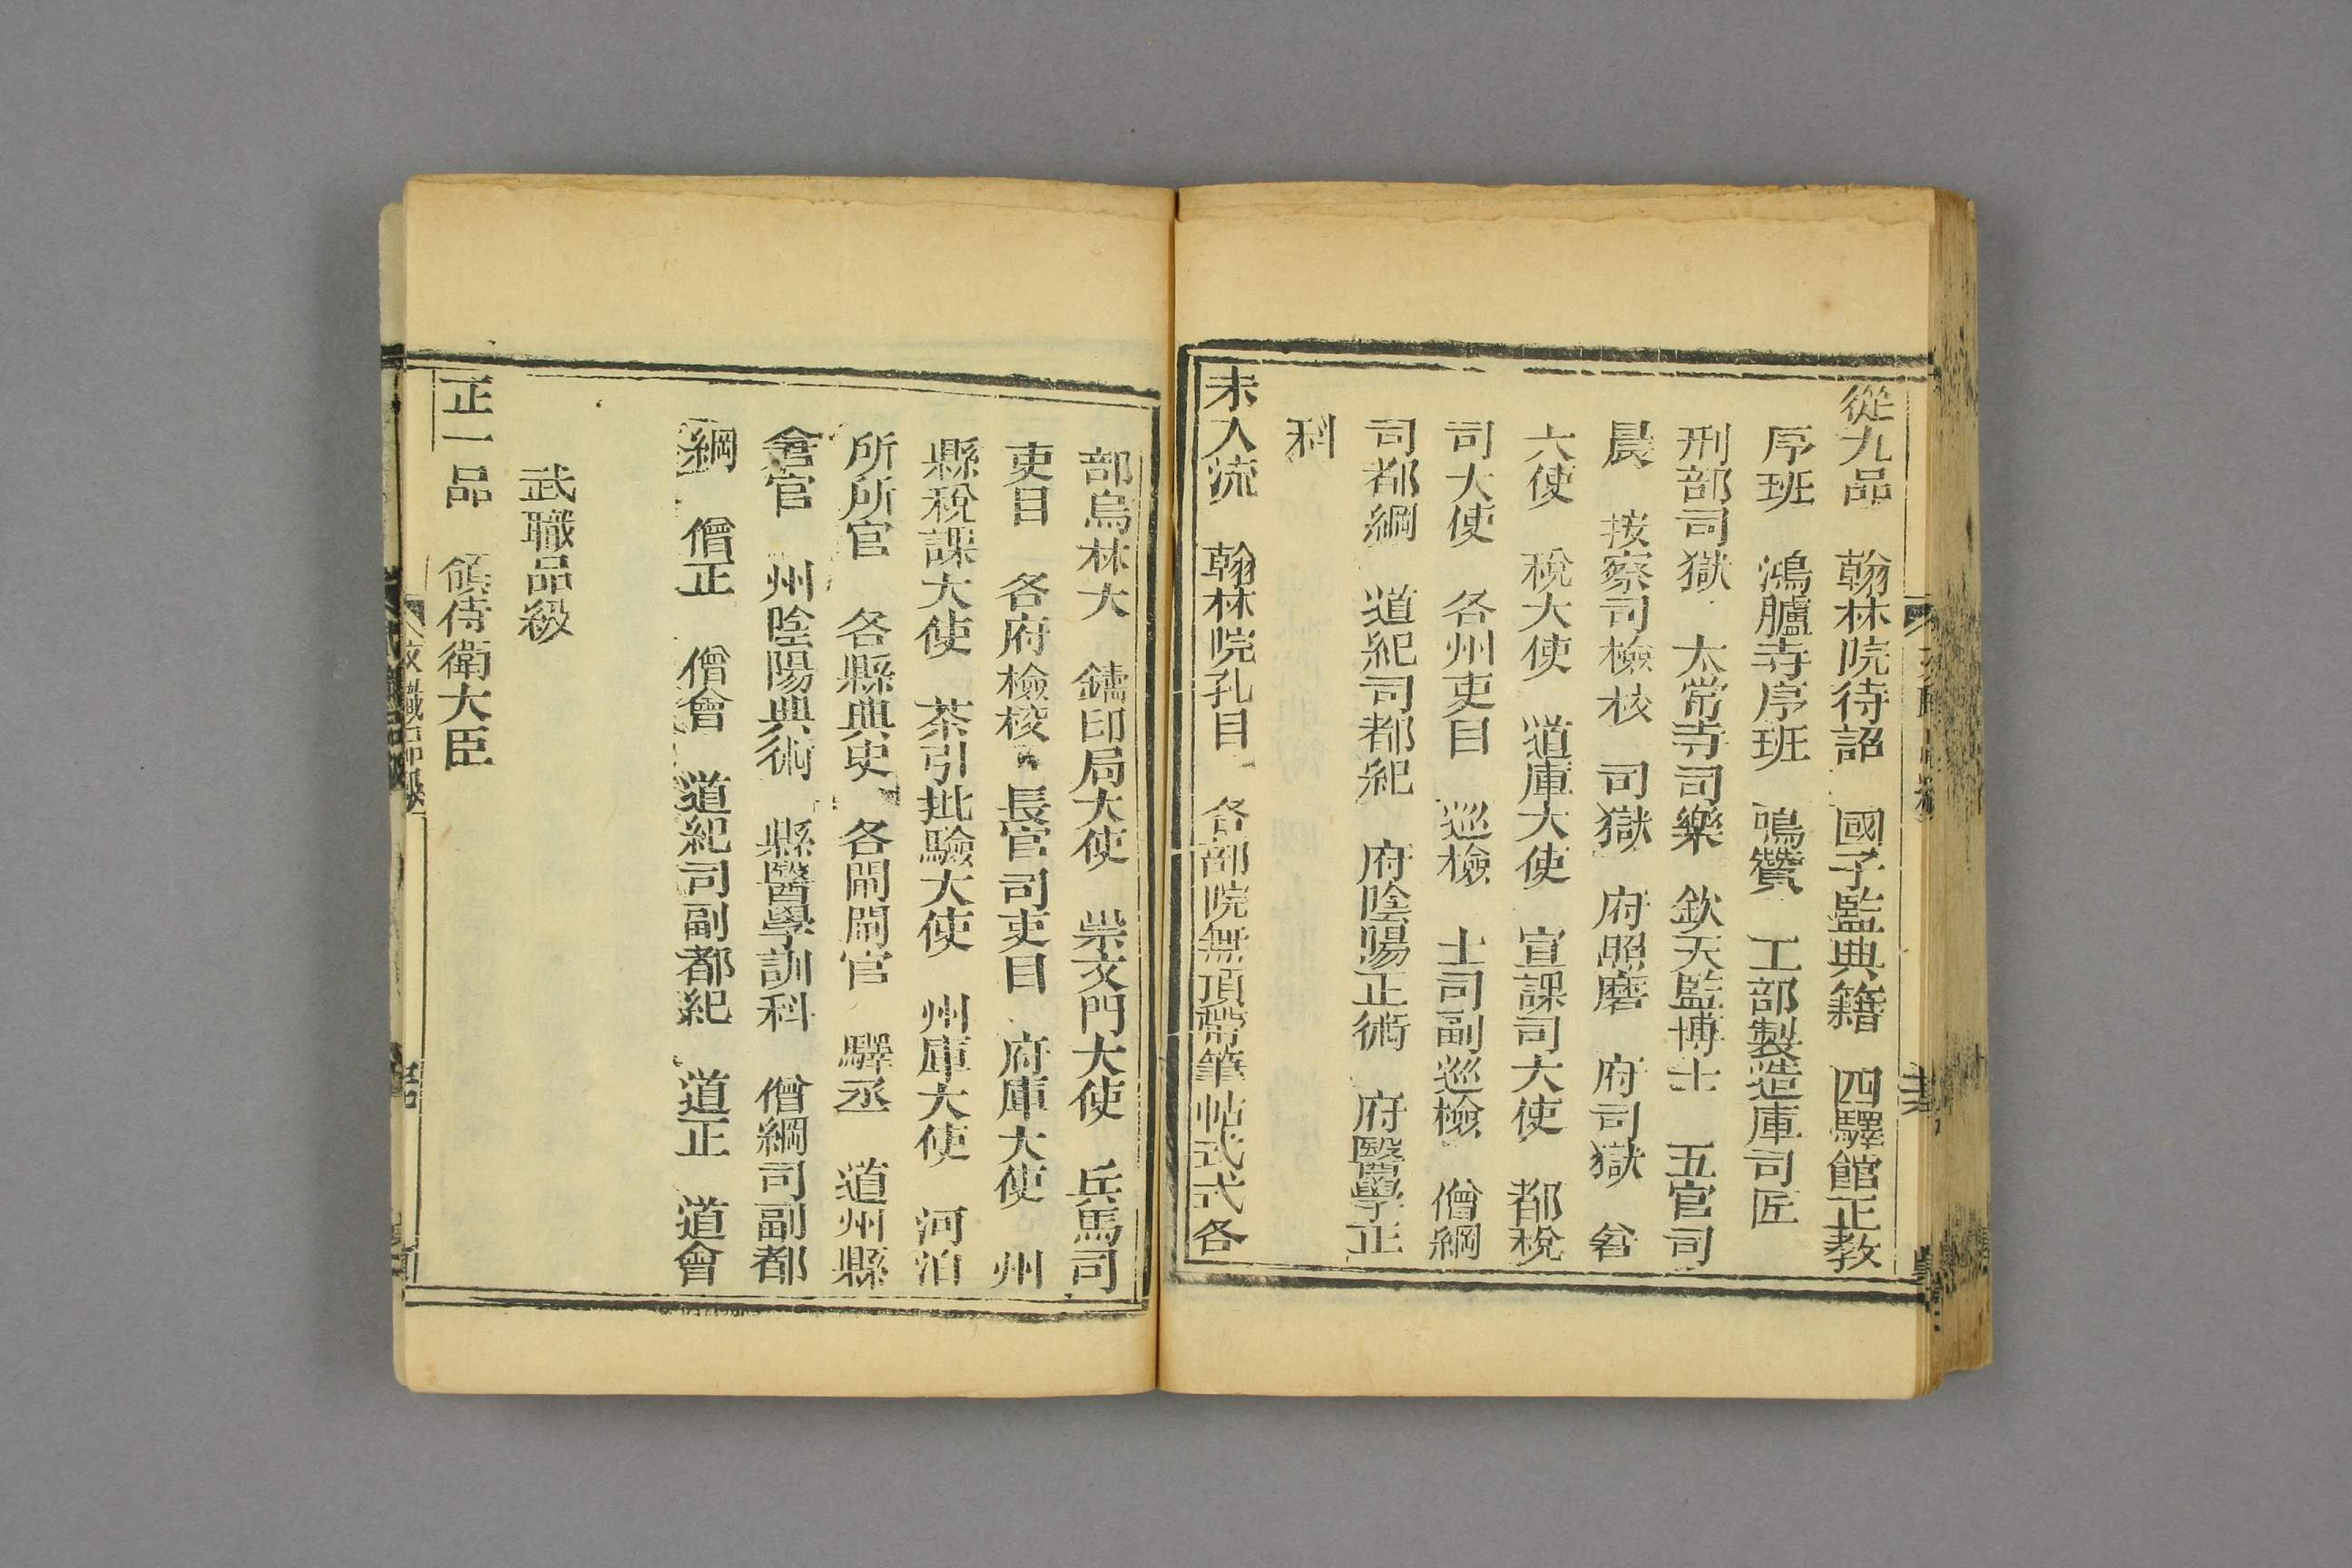 從九品 翰林院待詔 國子監典籍 四驛館正教
序班 鴻臚寺序班 鳴贊 工部製造庫司匠
刑部司獄 太常寺司樂 欽天監博士 五官司
晨 按察司檢校 司獄 府照磨 府司獄 倉
大使 稅大使 道庫大使 宣課司大使 都稅
司大使 各州吏目 巡檢 土司副巡檢 僧綱
司都綱 道紀司都紀 府陰陽正術 府醫學正
科
未入流 翰林院孔目 各部院無頂帶筆帖式式各
部烏林大 鑄印局大使 崇文門大使 兵馬司
吏目 各府檢校 長官司吏目 府庫大使 州
縣稅課大使 茶引批驗大使 州庫大使 河泊
所所官 各縣典史 各閘閘官 驛丞 道州縣
倉官 州陰陽典術 縣醫學訓科 僧綱司副都
綱 僧正 僧會 道紀司副都紀 道正 道會
武職品級
正一品 領侍衛大臣